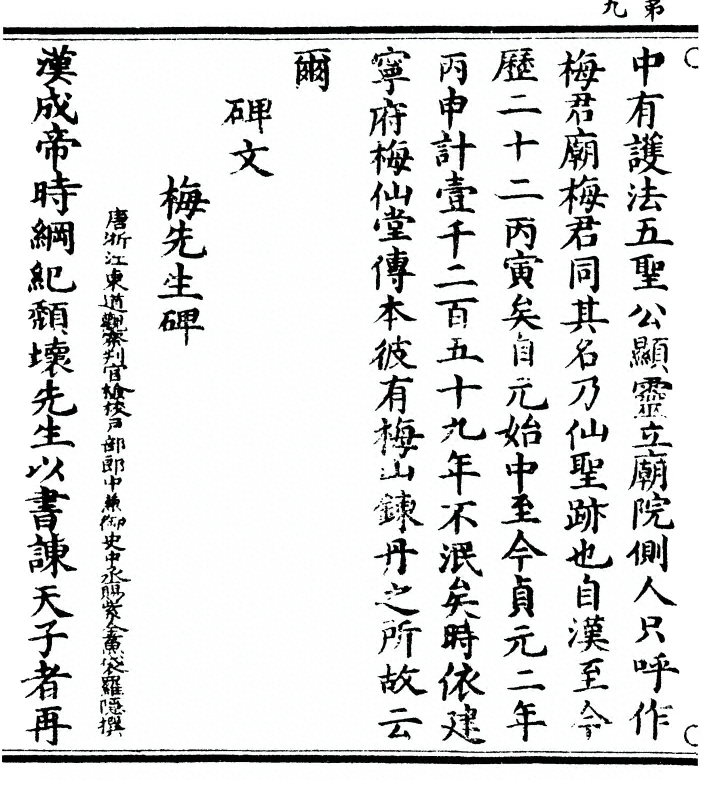 第九
中有護法五聖公顯靈立廟院側人只呼作
梅君廟梅君同其名乃仙聖跡也自漢至今
歷二十二丙寅矣自元始中至今貞元二年
丙申計壹千二百五十九年不泯矣時依建
寧府梅仙堂傳本彼有梅山鍊丹之所故云
爾
碑文
梅先生碑
唐浙江東道觀察判官檢校戶部郎中兼御史中丞賜紫金魚袋羅隱撰
漢成帝時綱紀頹壞先生以書諫天子者再